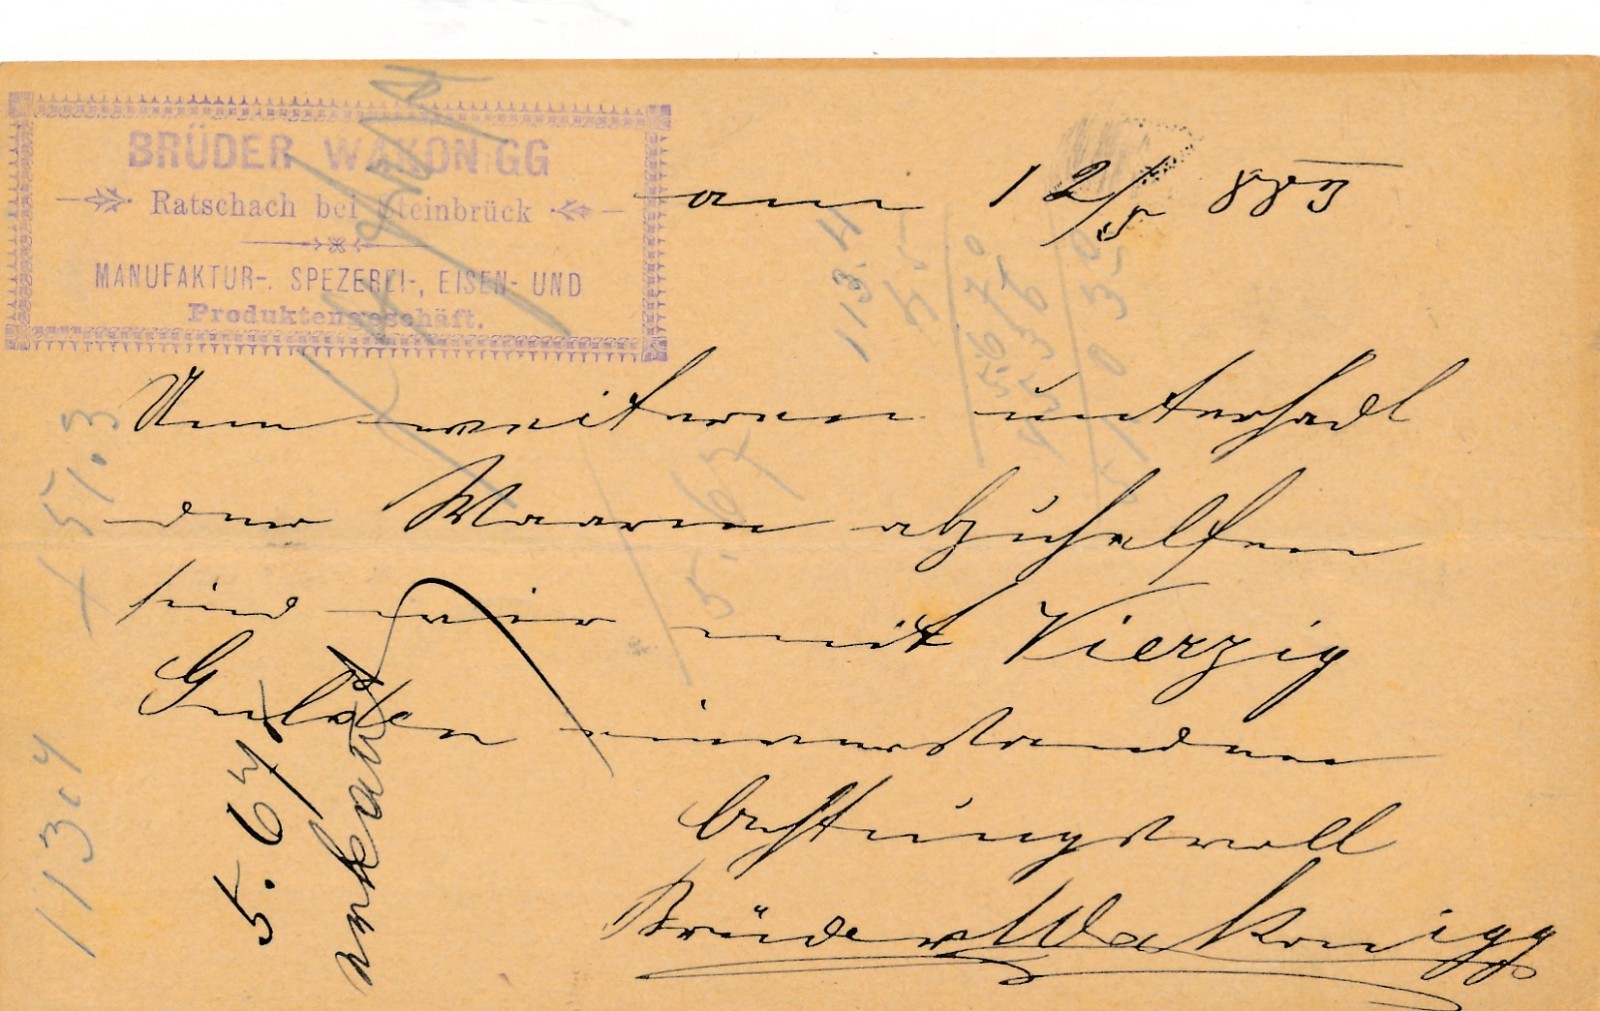 BRÜDER WAKONIGG
Ratschach bei Steinbrück
MANUFAKTUR-, SPEZEREI-, EISEN- UND
Produktengeschäft.
am 12/5 883
Um weiteren
der Waaren abzuhelfen
sind wir mit Vierzig
Gulden einverstanden
Achtungsvoll
Brüder Wakonigg
5.67
verkauft
113.4
+ 51.3
5.67
113.4
5670
4536